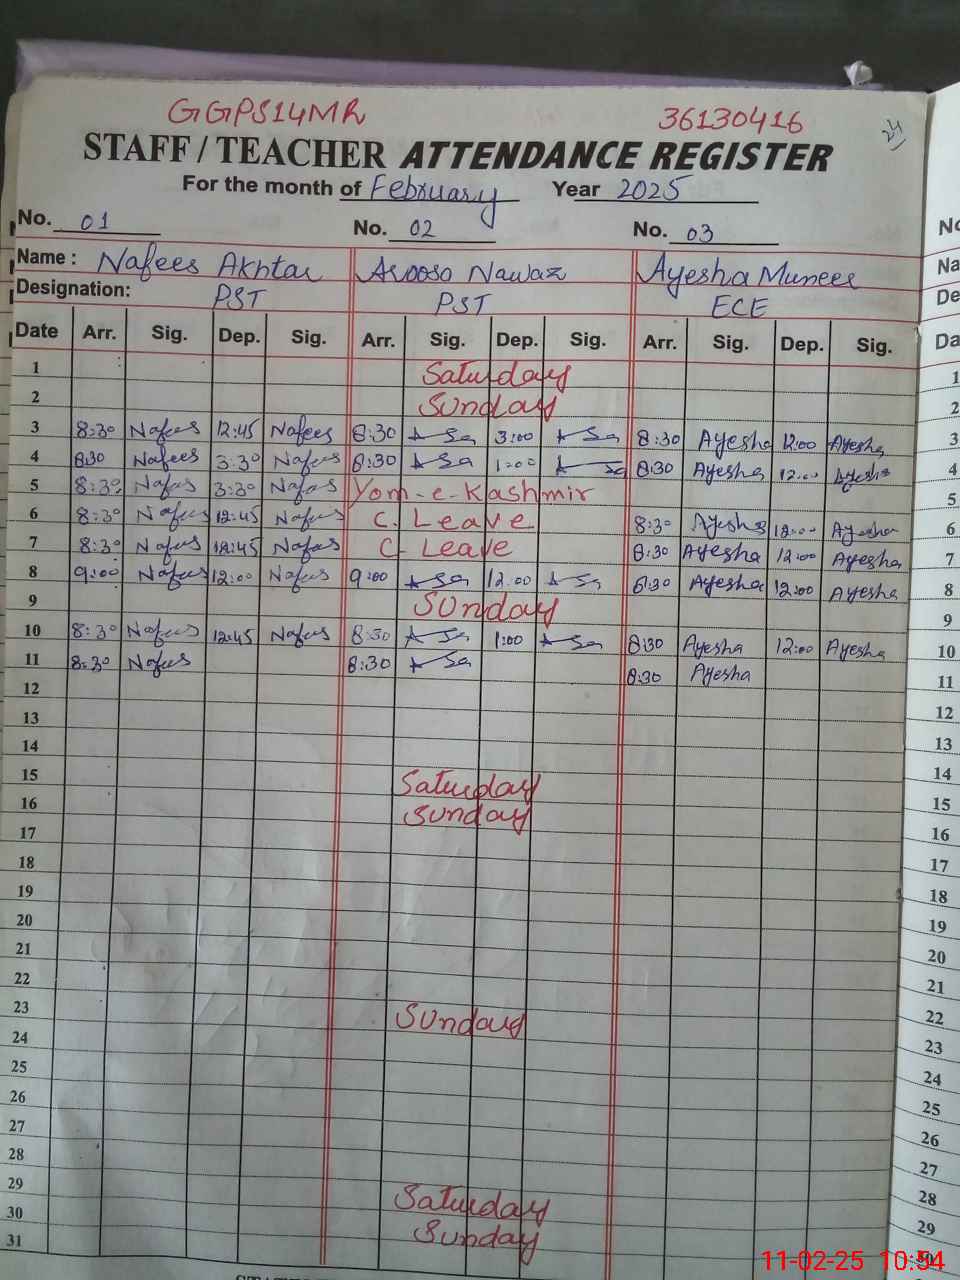 GGPS14MR 36130416 24
STAFF / TEACHER ATTENDANCE REGISTER
For the month of February Year 2025
No. 01 No. 02 No. 03
Name : Nafees Akhtar Arooso Nawaz Ayesha Muneer
Designation: PST PST ECE
Date Arr. Sig. Dep. Sig. Arr. Sig. Dep. Sig. Arr. Sig. Dep. Sig.
1 Saturday 1
2 Sunday 2
3 8:30 Nafees 12:45 Nafees 8:30 3:00 8:30 Ayesha 12:00 Ayesha 3
4 8:30 Nafees 3:30 Nafees 8:30 1:00 8:30 Ayesha 12:00 Ayesha 4
5 8:30 Nafees 3:30 Nafees Yom-e-Kashmir 5
6 8:30 Nafees 12:45 Nafees C. Leave 8:30 Ayesha 12:00 Ayesha 6
7 8:30 Nafees 12:45 Nafees C Leave 8:30 Ayesha 12:00 Ayesha 7
8 9:00 Nafees 12:00 Nafees 9:00 12:00 8:30 Ayesha 12:00 Ayesha 8
9 Sunday 9
10 8:30 Nafees 12:45 Nafees 8:30 1:00 8:30 Ayesha 12:00 Ayesha 10
11 8:30 Nafees 8:30 8:30 Ayesha 11
12 12
13 13
14 14
15 Saturday 15
16 Sunday 16
17 17
18 18
19 19
20 20
21 21
22 22
23 Sunday 23
24 24
25 25
26 26
27 27
28 28
29 29
30 Saturday 30
31 Sunday
11-02-25 10:54